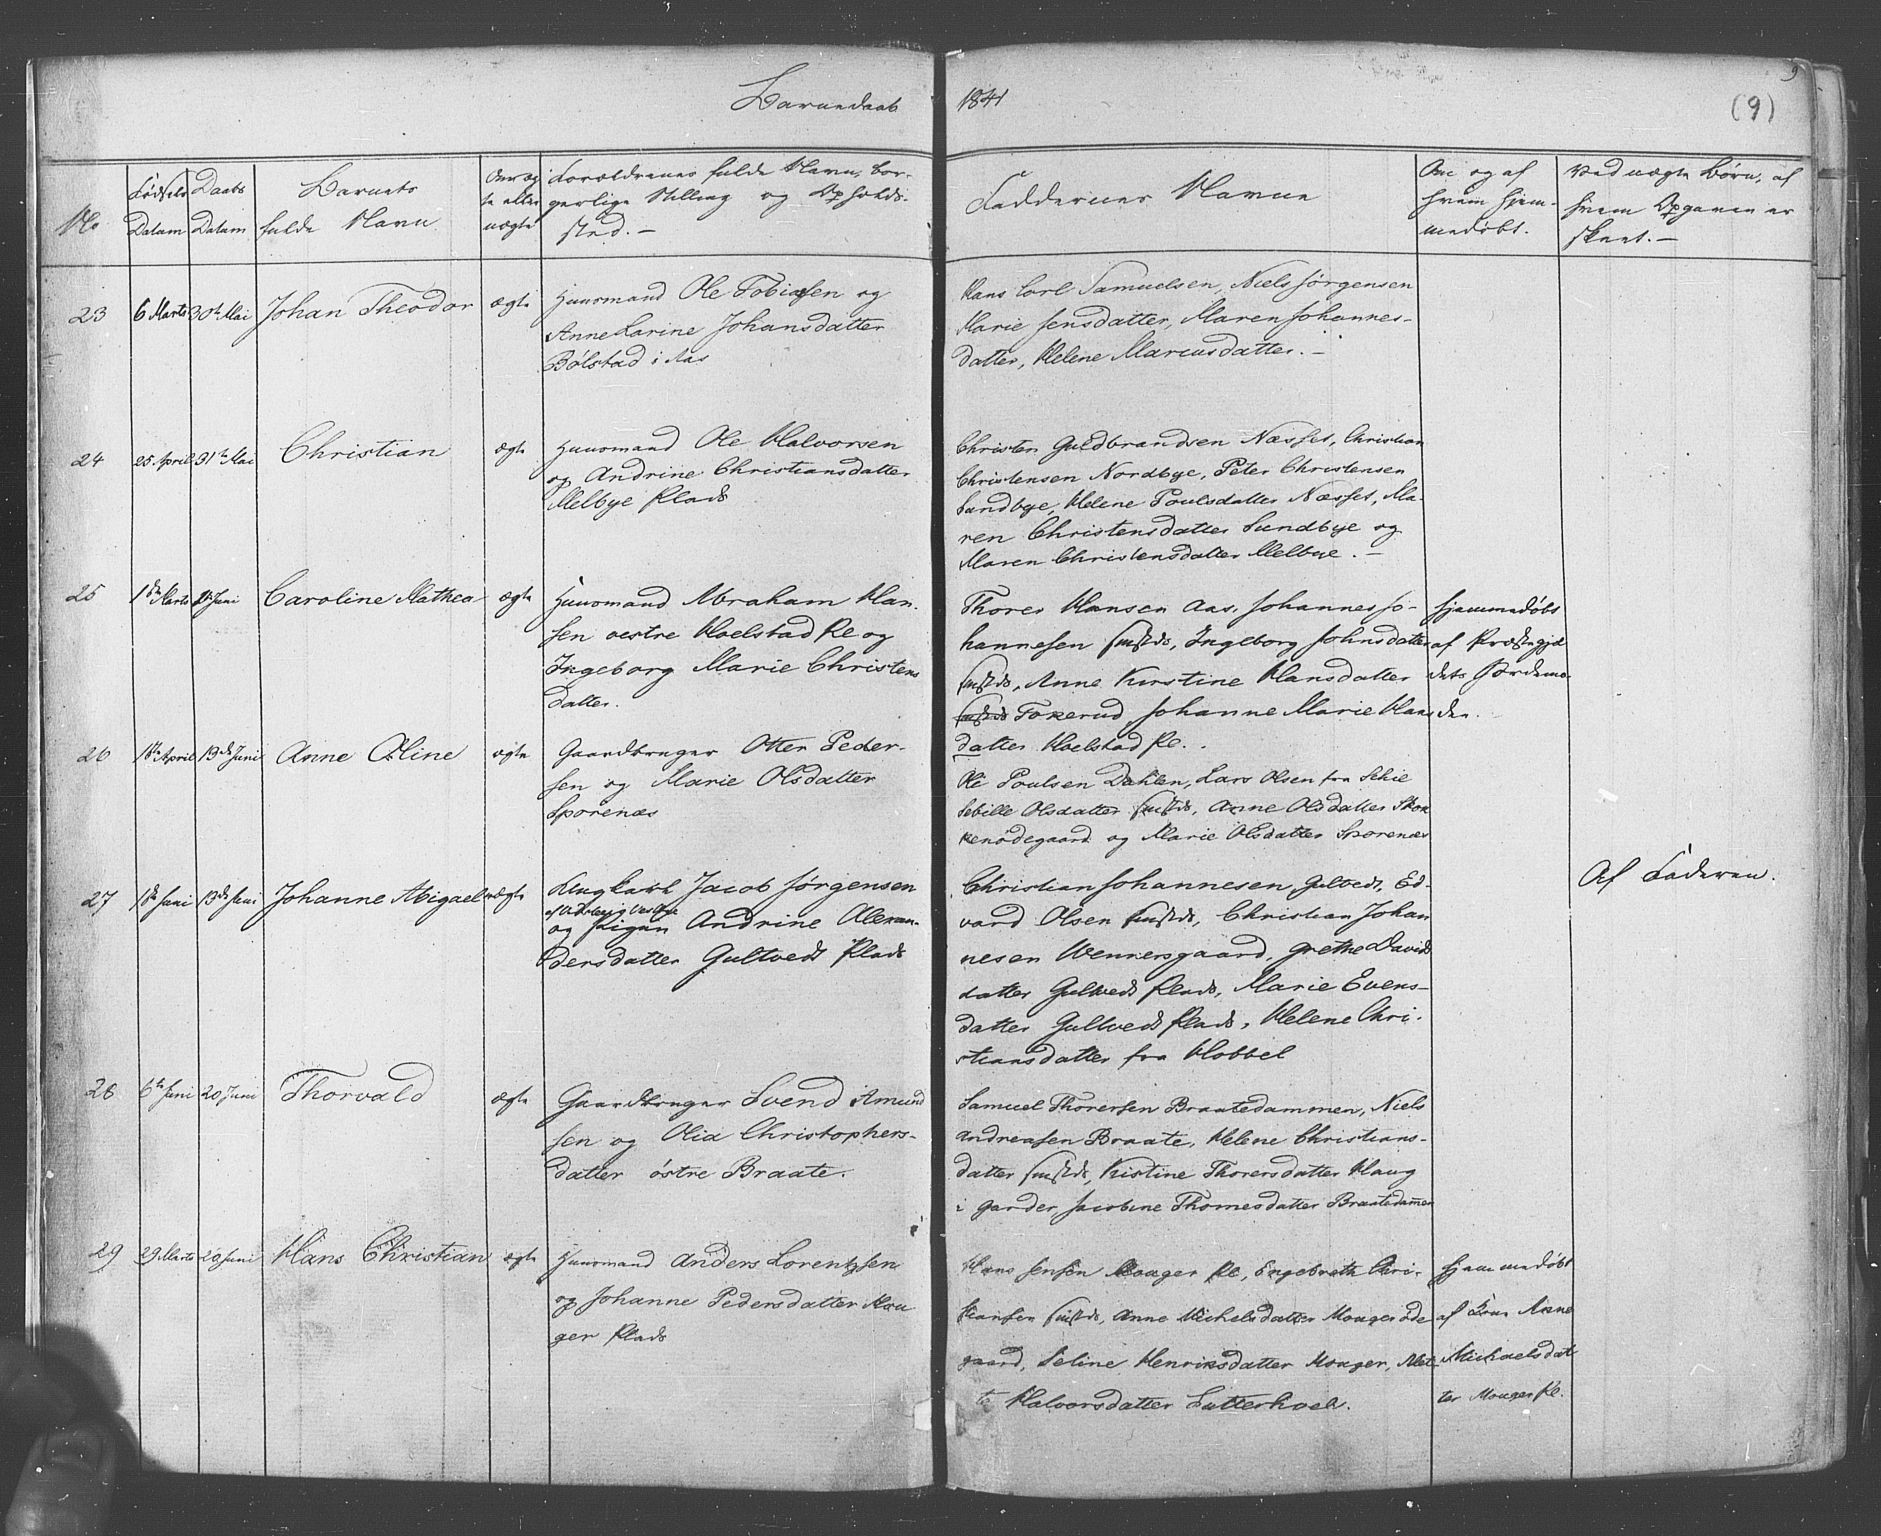 Barnedaab 1841
9
(9)
No
Fødsels Datum
Daabs Datum
Barnets fulde Navn
Om ægte eller uægte
Forældrenes fulde Navn, bor-
gerlige Stilling og Opholds-
sted. —
Faddernes Navne
Om og af
hvem hjem-
medøbt.
Ved uægte Børn, af
hvem Opgaven er
skeet. —
23
6 Marts
30te Mai
Johan Theodor
ægte
Huusmand Ole Tobiasen og
Anne Karine Johansdatter
Bølstad i Aas
Hans Carl Samuelsen, Niels Jørgensen
Marie Jensdatter, Maren Johannes-
datter, Helene Marcusdatter. —
24
25 April
31te Mai
Christian
ægte
Huusmand Ole Halvorsen
og Andrine Christiansdatter
Melbye Plads
Christen Guldbrandsen Næsset, Christian
Christensen Nordbye, Peter Christensen
Sundbye, Helene Poulsdatter Næsset, Ma-
ren Christensdatter Sundbye og
Maren Christensdatter Melbye. —
25
1ste Marts
Juni
Caroline Mathea
ægte
Huusmand Abraham Han-
sen vestre Haelstad Pl og
Ingeborg Marie Christens
datter.
Thorer Hansen Aas, Johannes Jo-
hannesen sammesteds, Ingeborg Johnsdatter
sammesteds, Anne Kirstine Hansdatter
Tokerud, Johanne Marie Hans
datter Haelstad Pl.
Hjemmedøbt
af Præstegjæl
dets Jordemo
der.
26
April
13de Juni
Anne Oline
ægte
Gaardbruger Otter Peder-
sen og Marie Olsdatter
Sporenæs
Ole Poulsen Dahlen, Lars Olsen fra Schie
Sebille Olsdatter sammesteds, Anne Olsdatter Skok
kenødegaard og Marie Olsdatter Sporenæs
27
1ste Juni
13de Juni
Johanne Abigael
uægte
Ungkarl Jacob Jørgensen
og Pigen Andrine Alexan-
dersdatter Gultvedt Plads
Christian Johannesen Gultvedt, Ed-
vard Olsen sammesteds, Christian Johan
nesen Wennersgaard, Grethe Davids
datter Gultvedt Plads, Marie Evens-
datter Gultvedt Plads, Helene Chri-
stiansdatter fra Hobbel
Af Faderen.
28
6te Juni
20 Juni
Thorvald
ægte
Gaardbruger Svend Amund
sen og Olia Christophers-
datter østre Braate.
Samuel Thorersen Braatedammen, Niels
Andreasen Braate, Helene Christians-
datter sammesteds, Kistine Thorersdatter Haug
i Garder, Jacobine Thomesdatter Braatedammen
29
29 Marts
20 Juni
Hans Christian
ægte
Huusmand Anders Lorentzsen
og Johanne Pedersdatter Mou
ger Plads
Hans Jensen Mouger Pl, Engebreth Chri-
stiansen sammesteds, Anne Michelsdatter Mouger øde
gaard, Seline Henriksdatter Mouger, Met-
te Halvorsdatter Sutterhoel.
Hjemmedøbt
af Anne
Michaelsdat
ter Mouger Pl.